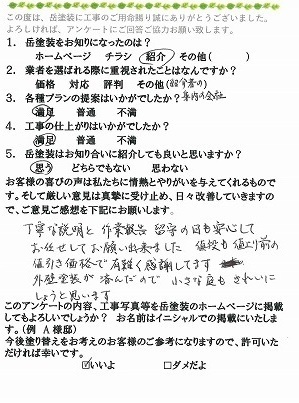 この度は、岳塗装に工事のご用命賜り誠にありがとうございました。
よろしければ、アンケートにご回答ご協力お願い致します。
1. 岳塗装をお知りになったのは?
ホームページ チラシ 紹介 その他( )
2. 業者を選ばれる際に重視されたことはなんですか?
価格 対応 評判 その他(
3. 各種プランの提案はいかがでしたか?
満足 普通 不満
4. 工事の仕上がりはいかがでしたか?
満足 普通 不満
5. 岳塗装はお知り合いに紹介しても良いと思いますか?
思う どちらでもない 思わない
お客様の喜びの声は私たちに情熱とやりがいを与えてくれるものです。
そして厳しい意見は真摯に受け止め、日々改善していきますので、ご意見ご感想を下記にお願いします。
丁寧な説明と作業報告 留守の日も安心して
お任せしてお願い出来ました 値段も値上り前の
値引き価格で有難く感謝してます
外壁塗装が済んだので 小さな庭もきれいに
しようと思います
このアンケートの内容、工事写真等を岳塗装のホームページに掲載
してもよろしいでしょうか? お名前はイニシャルでの掲載にいたしま
す。(例 A様邸)
今後塗り替えをお考えのお客様のご参考になりますので、許可いた
だければ幸いです。
☑いいよ □ダメだよ